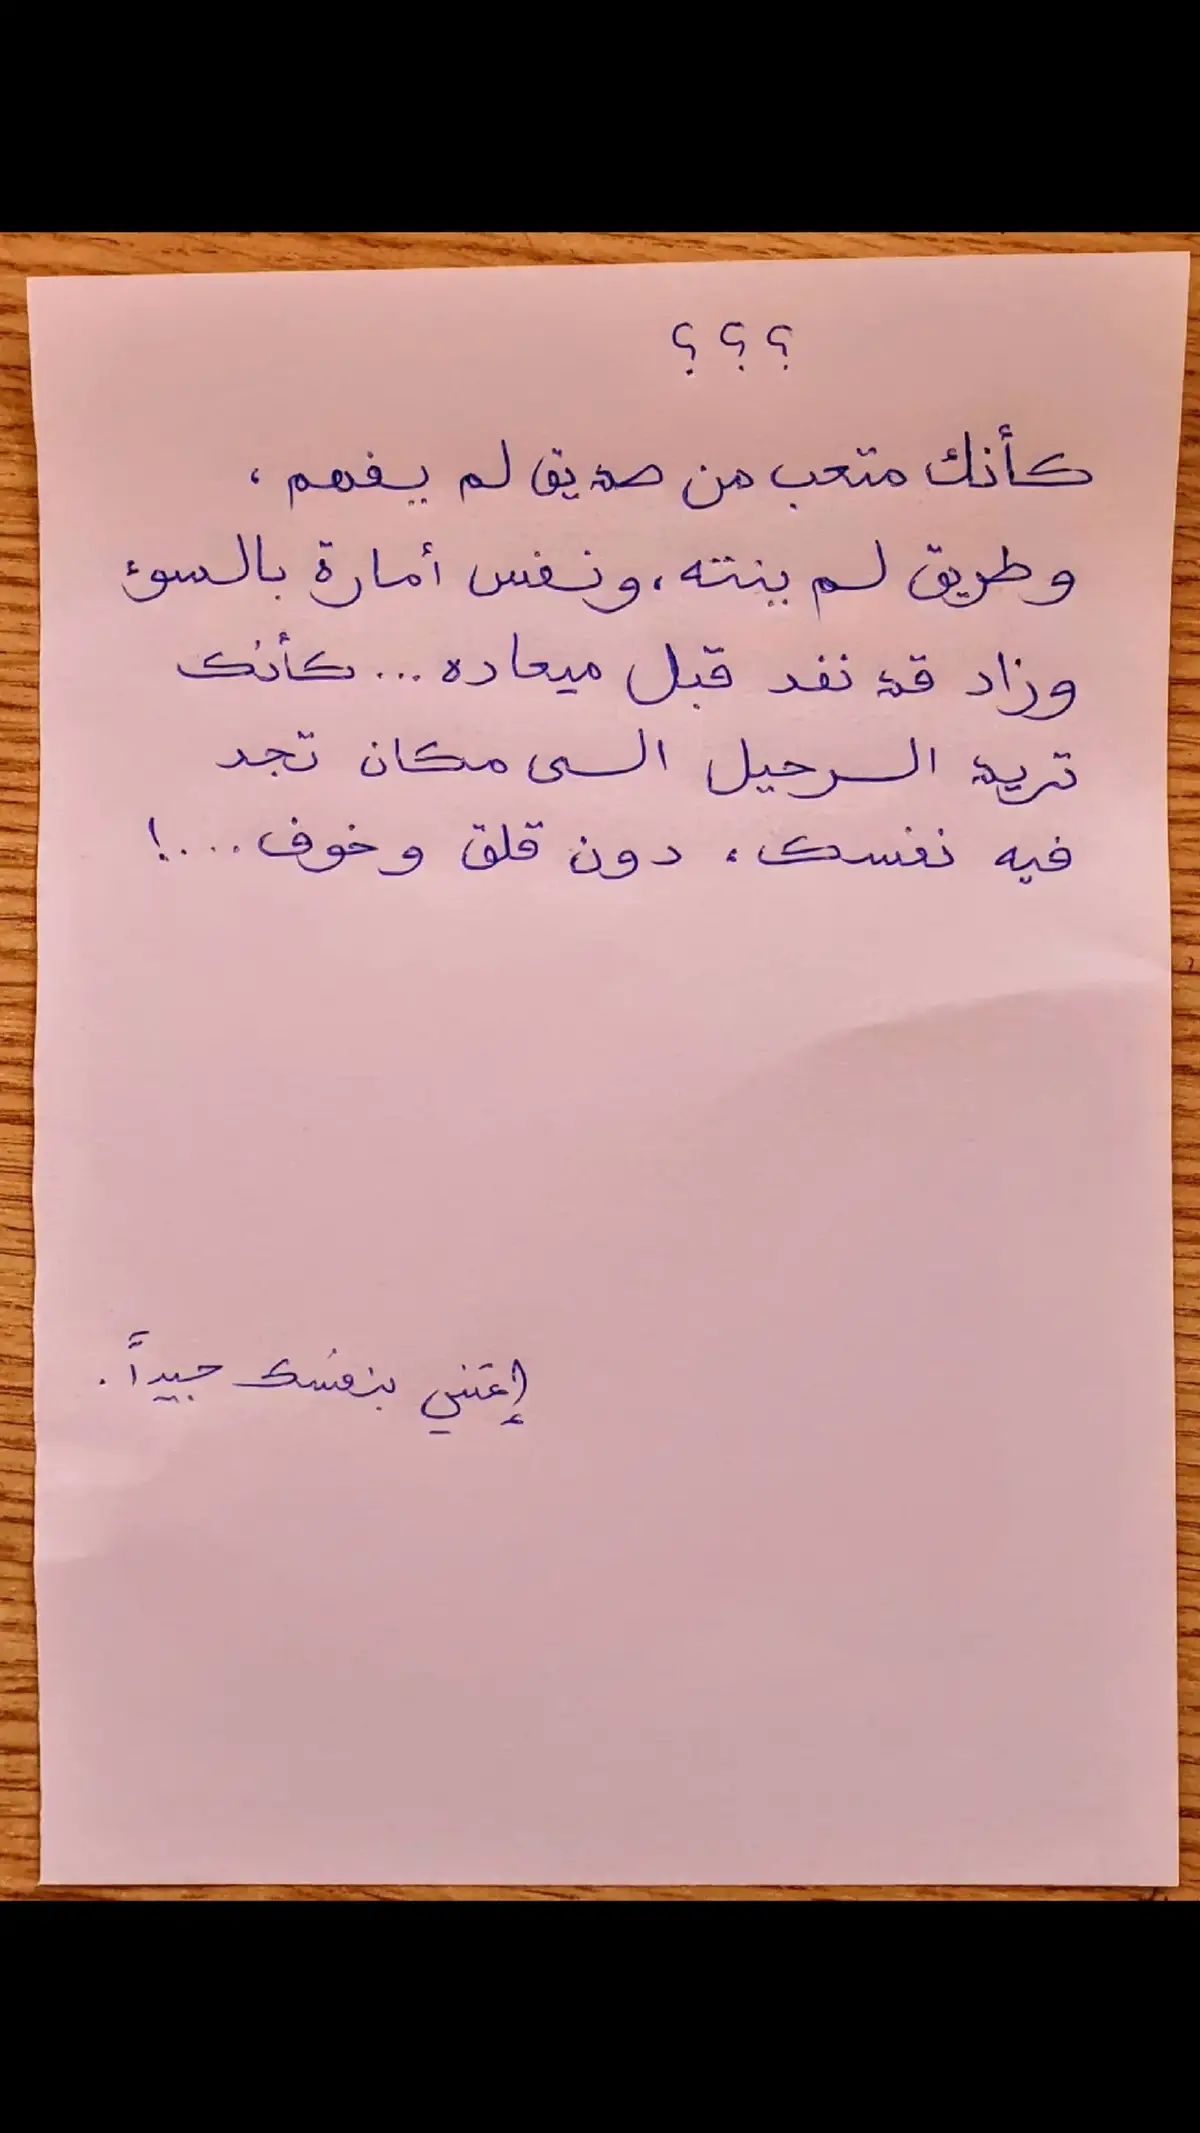 ؟ ؟ ؟
كأنك متعب من صديق لم يفهم،
وطريق لم ينته، ونفس أمارة بالسوء
وزاد قد نفد قبل ميعاده... كأنك
تريد الرحيل الى مكان تجد
فيه نفسك، دون قلق وخوف....!
إعتني بنفسك جيداً.